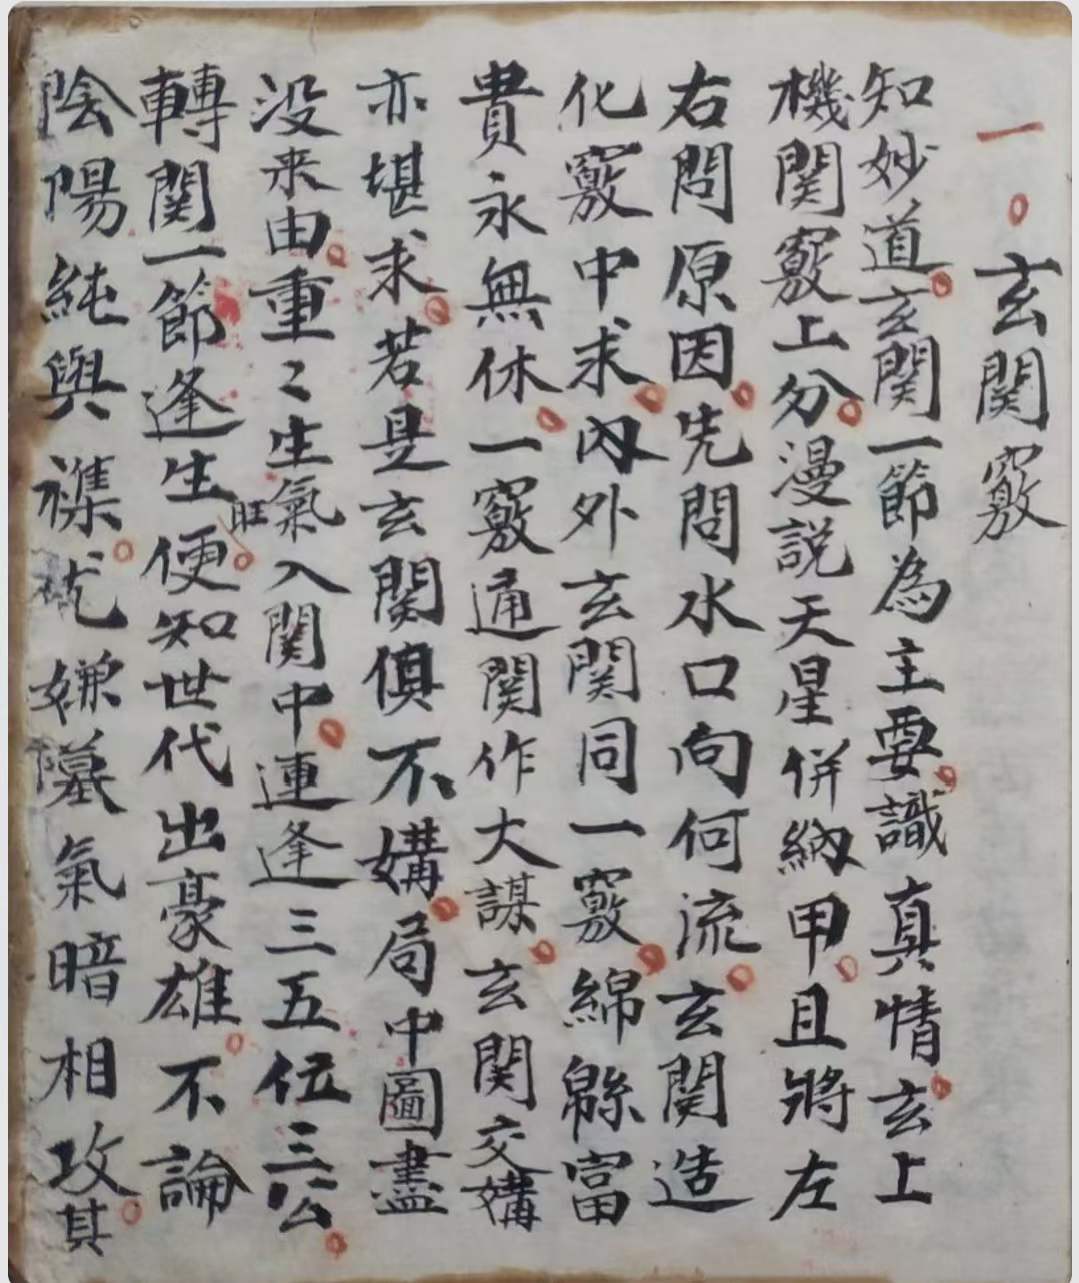 一 。玄関竅
知妙道。玄関一節為主要。識真情。玄上
機関竅上分。漫説天星併納甲。且将左
右問原因。先問水口向何流。玄関造
化竅中求。内外玄関同一竅。綿緜富
貴永無休。一竅通関作大謀。玄関交媾
亦堪求。若是玄関俱不媾。局中圖盡
没来由。重〻生氣入関中。連逢三五位三公。
轉関一節逢生旺便。知世代出豪雄。不論
陰陽純與襍。嫌墓氣暗相攻。其